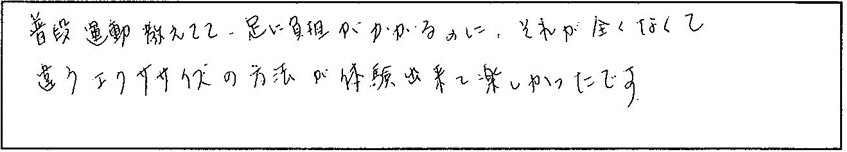 普段運動教えてて、足に負担がかかるのに、それが全くなくて
違うエクササイズの方法が体験出来て楽しかったです